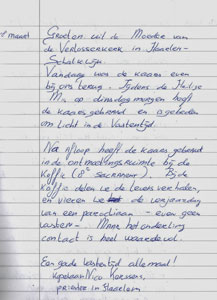 8 maart Groeten uit de Moeder van
de Verlosserkerk in Haarlem-
Schalkwijk.
Vandaag was de kaars even
bij ons terug. Tijdens de Heilige
Mis op dinsdagmorgen heeft
de kaars gebrand en is gebeden
om licht in de Vastentijd.
Na afloop heeft de kaars gebrand
in de ontmoetingsruimte bij de
koffie (8e Sacrament). Bij de
koffie delen we de levensverhalen,
en vieren we de verjaardag
van een parochiaan - even geen
vasten - . Maar het onderling
contact is heel waardevol.
Een goede vastentijd allemaal!
Kapelaan Nico
priester in Haarlem